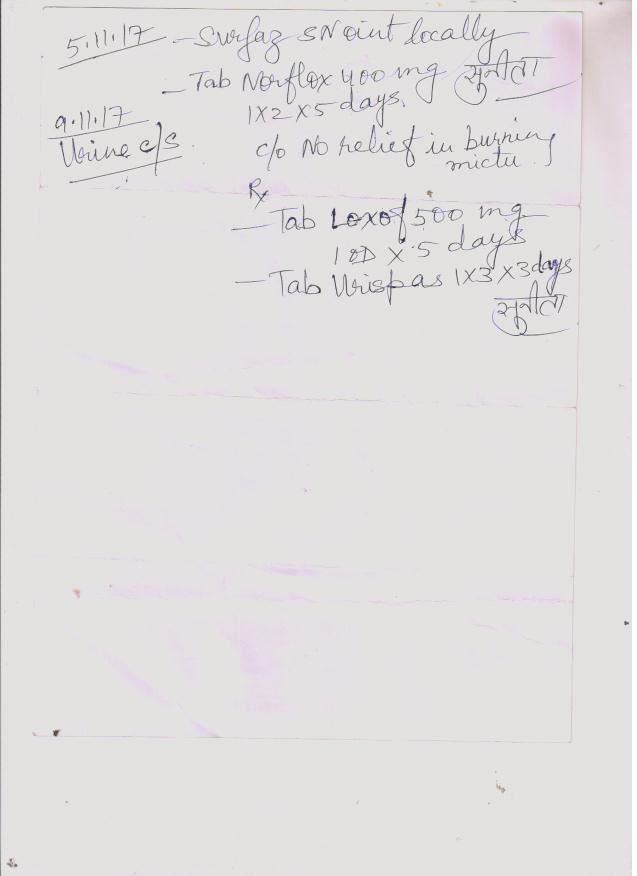 5.11.17 - Surfaz SN oint locally
- Tab Norflox 400 mg सुनीता
1X2 X 5 days.
9.11.17
Urine c/s
c/o No relief in burning
mictu.
Rx
- Tab Loxof 500 mg
1 OD X 5 days
- Tab Urispas 1X3 X 3 days
सुनीता